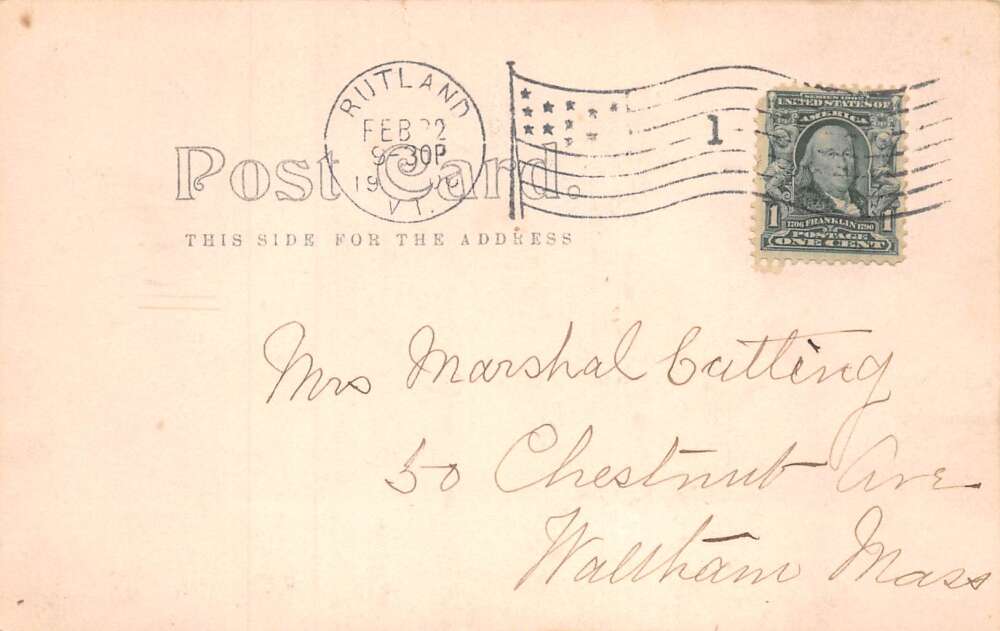 RUTLAND
FEB 22
9-30P
19
VT.
1
SERIES 1902
UNITED STATES OF
AMERICA
1 1706 FRANKLIN 1790 1
POSTAGE
ONE CENT
Post Card.
THIS SIDE FOR THE ADDRESS
Mrs Marshal Cutting
50 Chestnut Ave
Waltham Mass